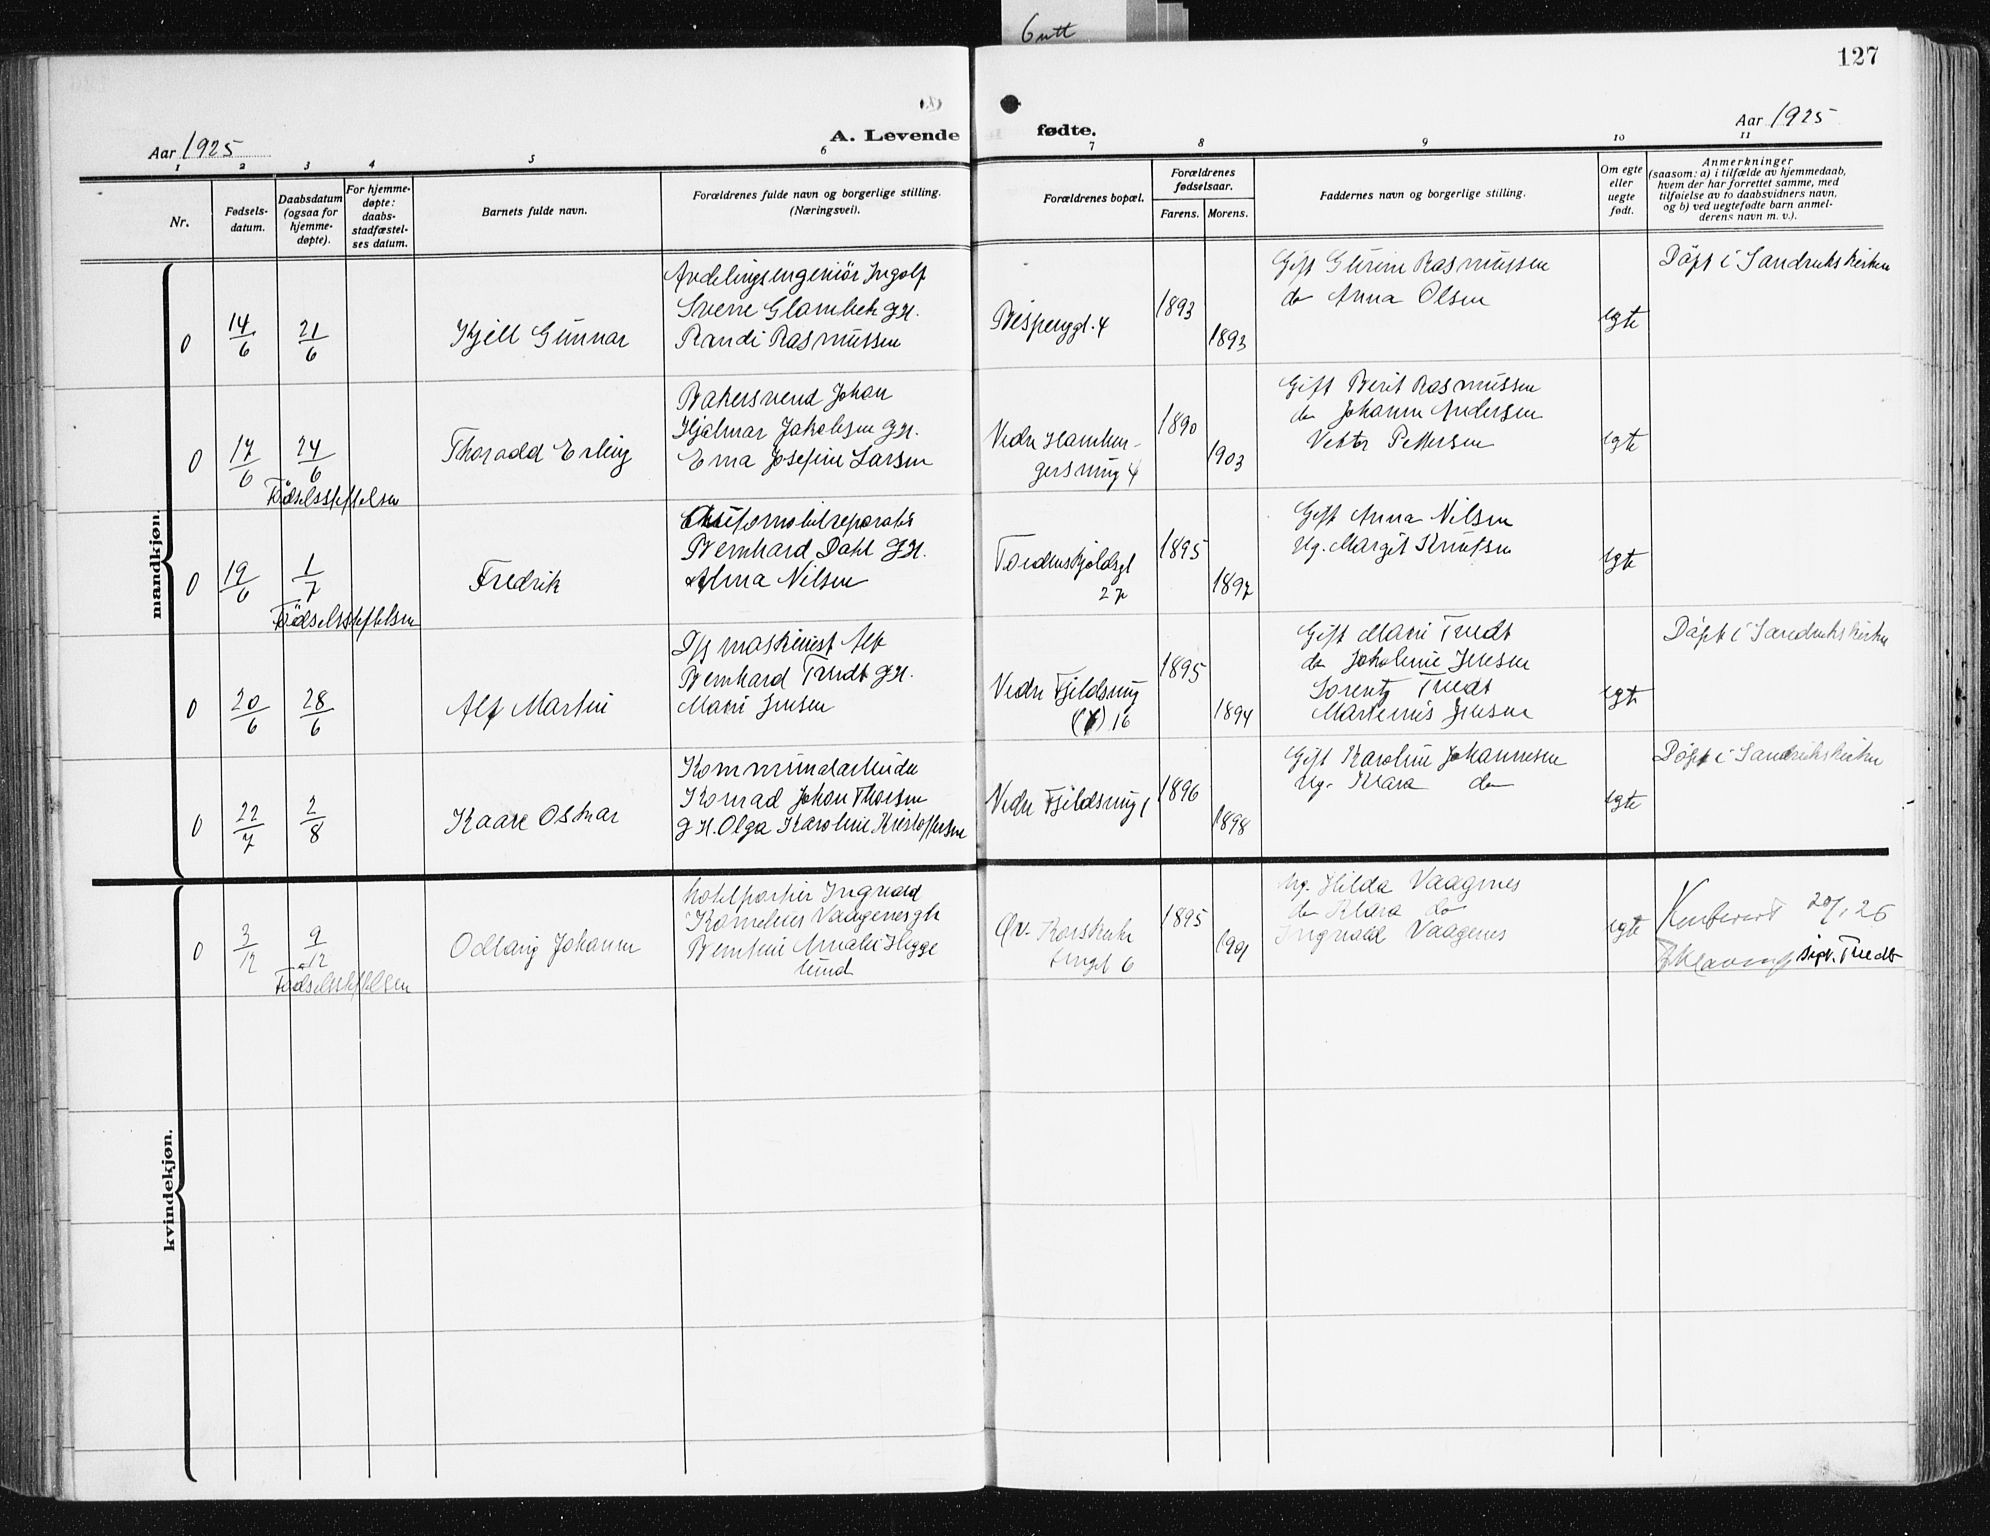 Gutt
127
Aar 1925
A. Levende fødte.
Aar 1925
1 2 3 4 5 6 7 8 9 10 11
Nr.
Fødsels-
datum.
Daabsdatum
(ogsaa for
hjemme-
døpte).
For hjemme-
døpte:
daabs-
stadfæstel-
ses datum.
Barnets fulde navn.
Forældrenes fulde navn og borgerlige stilling.
(Næringsvei).
Forældrenes bopæl.
Forældrenes
fødselsaar.
Farens. Morens.
Faddernes navn og borgerlige stilling.
Om egte
eller
uegte
født.
Anmerkninger
(saasom: a) i tilfælde av hjemmedaab,
hvem der har forrettet samme, med
tilføielse av to daabsvidners navn,
og b) ved uegtefødte barn anmel-
derens navn m. v.).
mandkjøn.
0
14/6
21/6
Kjell Gunnar
Avdelingsingeniør Ingolf
Sverre Glambek g.H.
Randi Rasmussen
Vespengt. 4
1893
1893
Gift Gurine Rasmussen
do Anna Olsen
egte
Döpt i Sandvikskirken
0
17/6
24/6
Fødselsstiftelsen
Thoradd Erling
Bakersvend Johan
Hjalmar Jakobsen g.H.
Erna Josefine Larsen
Nedre Hamburgersmug 4
1890
1903
Gift Berit Rasmussen
do Johanne Andersen
Viktor Pettersen
egte
0
19/6
1/7
Fødselsstiftelsen
Fredrik
Automobilreparatør
Bernhard Dahl g.H.
Alma Nilsen
Tordenskjoldsgt
27
1895
1897
Gift Anna Nilsen
Ug. Margit Knutsen
egte
0
20/6
28/6
Alf Martin
D/s maskinist Alf
Bernhard Tvedt g.H.
Marie Jensen
Nedre Fjeldsmug
16
1895
1894
Gift Marie Tvedt
do Jakobine Jensen
Lorentz Tvedt
Martinus Jensen
egte
Döpt i Sandvikskirken
0
22/7
2/8
Kaare Oskar
Kommunalarbeider
Konrad Johan Thorsen
g.H. Olga Karoline Kristoffersen
Nedre Fjeldsmug 1
1896
1898
Gift Karoline Johannesen
Ug. Klara do
egte
Döpt i Sandvikskirken
kvindekjøn.
0
3/12
9/12
Fødselsstiftelsen
Odlaug Johanne
Hotelportier Ingvald
Kornelius Vaagenes gh
Berntine Amalie Hegge
lund
Øv. Korskirke
6
1895
1901
Ug. Hilda Vaagenes
do Klara do
Ingvald Vaagenes
egte
20/1 26
sign. Tvedt